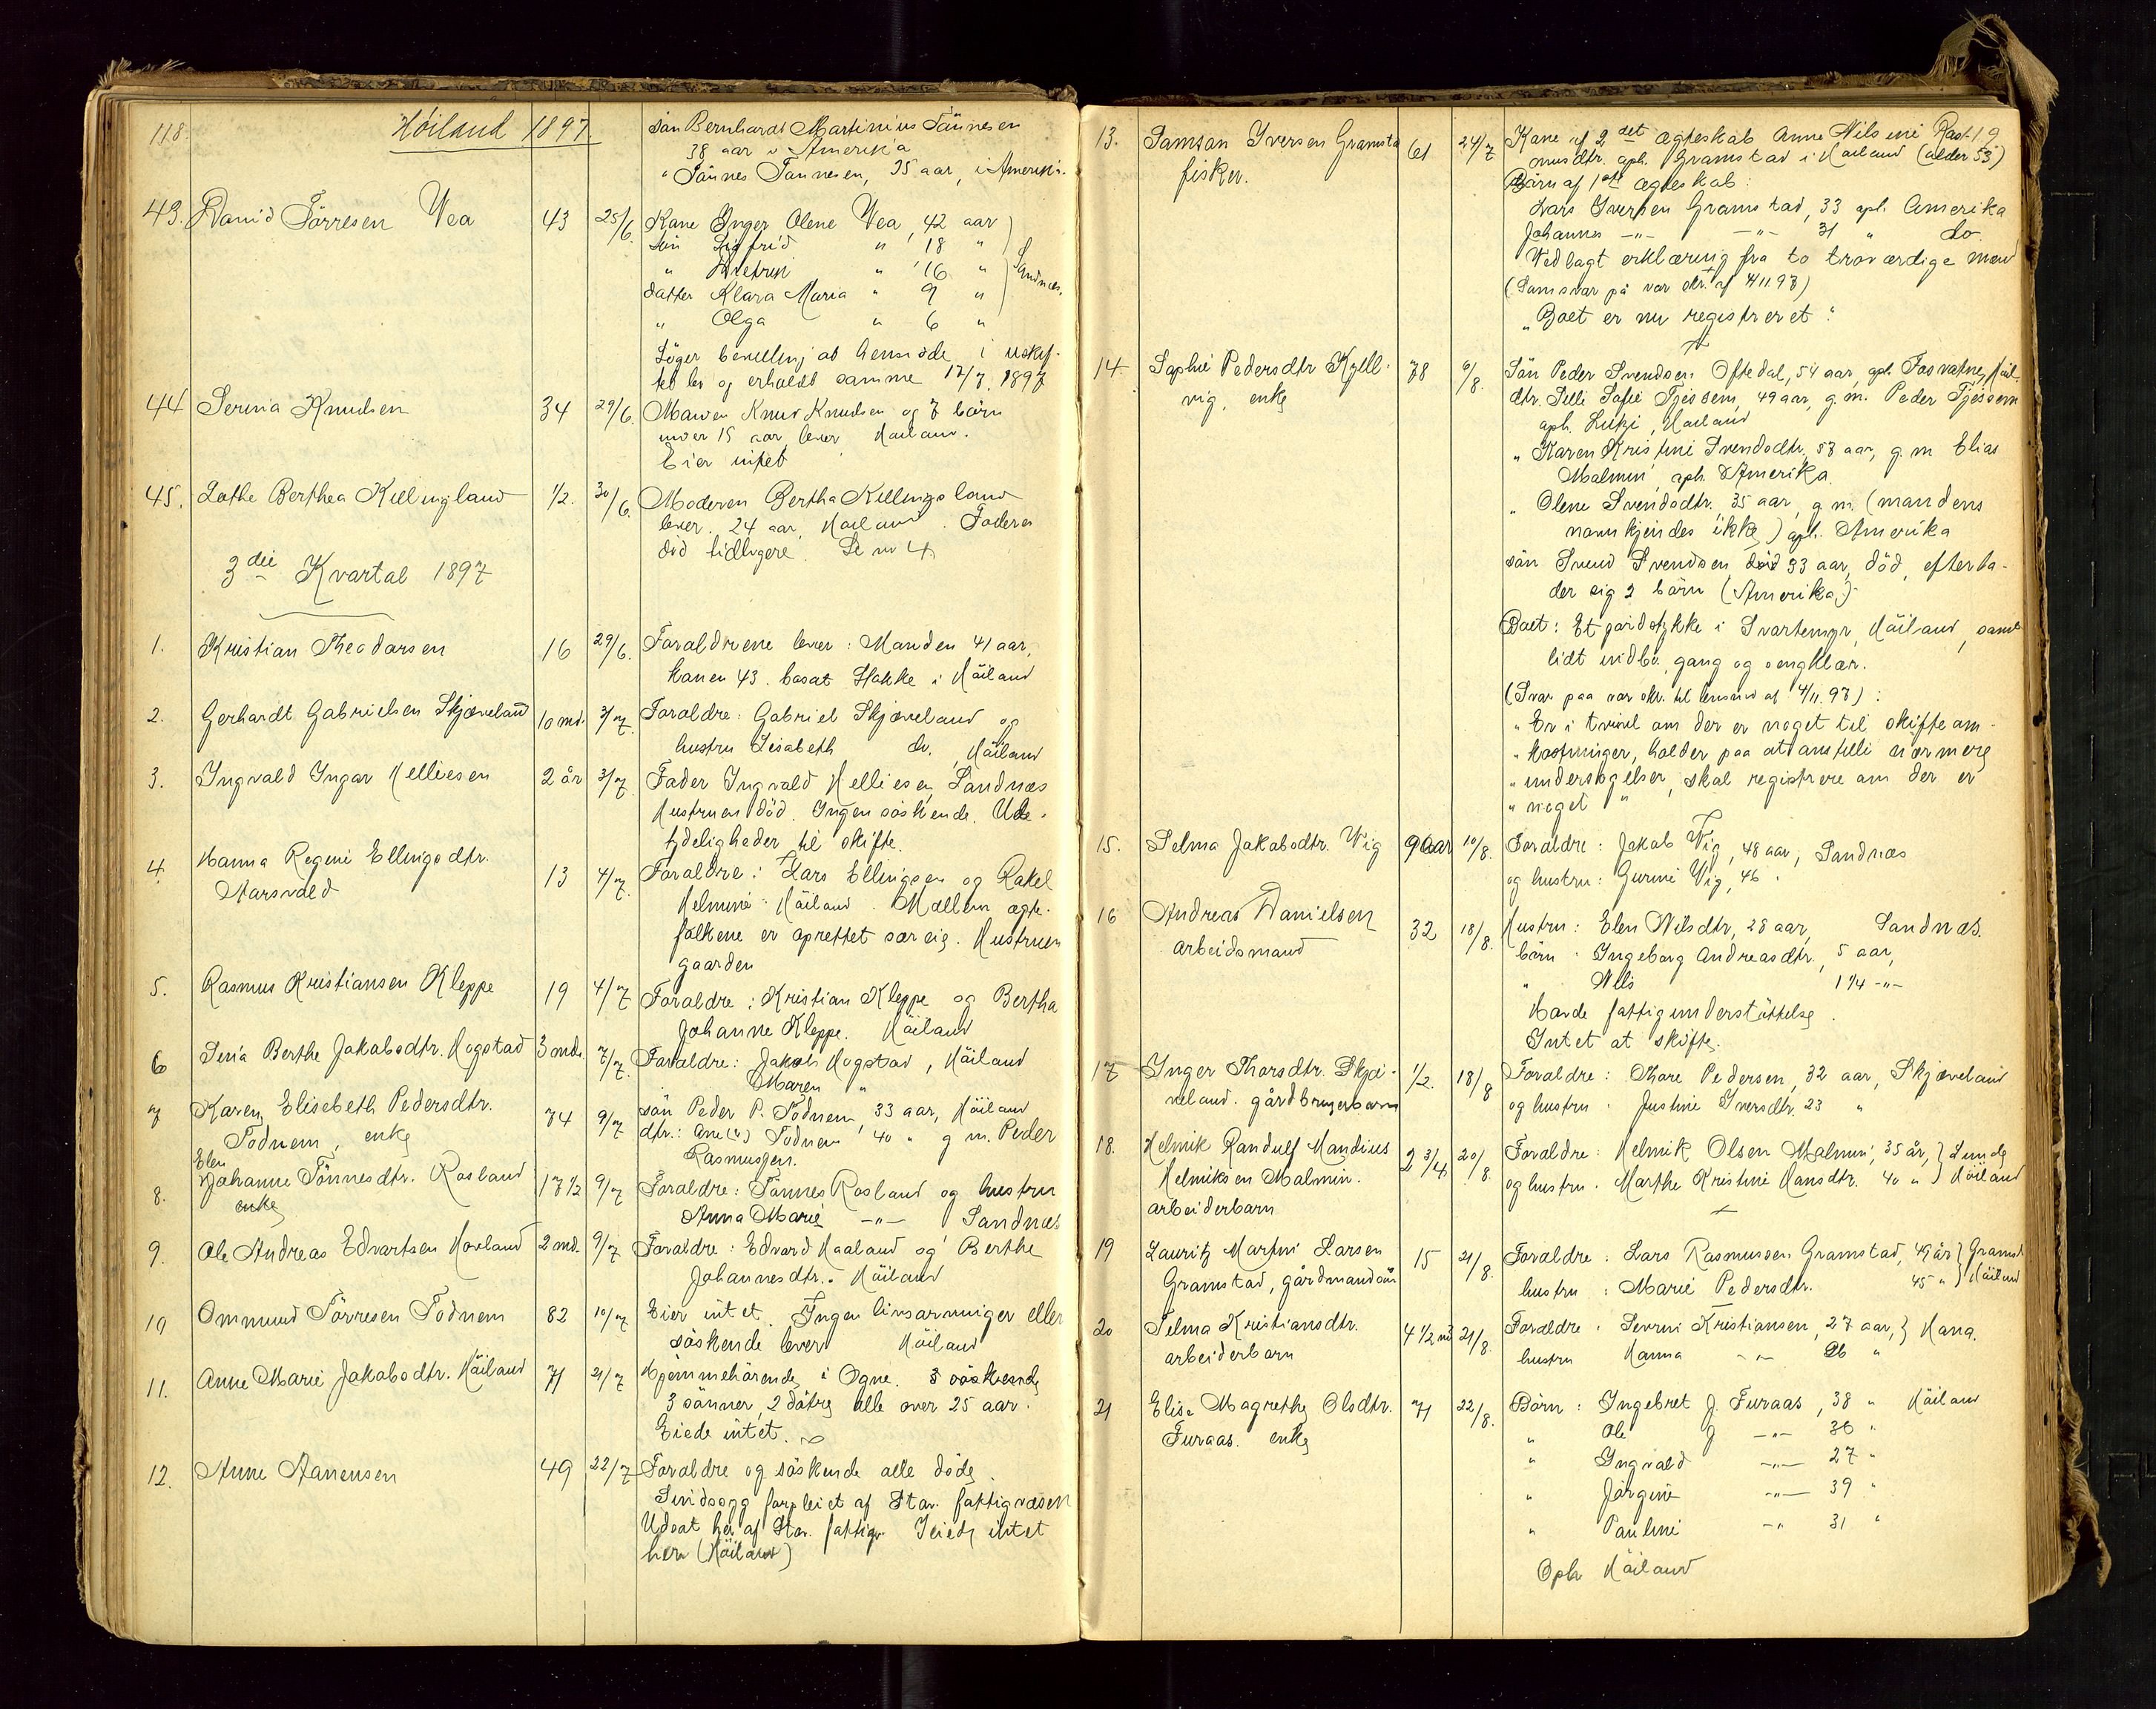 118. Höiland 1897.
sön Bernhardt Martinius Tönnesen
38 aar i Amerika
" Tönnes Tönnesen, 35 aar, i Amerika
43. David Törresen Vea 43 25/6. Kone Inger Olene Vea, 42 aar
sön Sigfrid " 18 "
" " 16 " Sandnæs.
datter Klara Maria " 9 "
" Olga " 6 "
Söger bevilling at hensidde i uskif-
tet bo og erholdt samme 17/7. 1897
44 Serina Knudsen 34 29/6. Manden Knud Knudsen og 7 börn
under 15 aar lever Höiland.
Eier intet
45. Lothe Berthea Kellingland 1/2. 30/6. Moderen Bertha Kellingsland
lever. 24 aar, Höiland. Faderen
död tidligere. Se no 4.
3die Kvartal 1897
1. Kristian Theodorsen 16 29/6. Forældrene lever: Manden 41 aar,
konen 43. bosat Stokke i Höiland
2. Gerhardt Gabrielsen Skjæveland 10 md. 3/7. Forældre: Gabriel Skjæveland og
hustru Lisabeth do, Höiland
3. Ingvald Ingar Helliesen 2 år 3/7. Fader Ingvald Helliesen, Sandnæs
Hustruen död. Ingen söskende. Ube-
tydeligheder til skifte.
4. Hanna Regine Ellingsdtr. 13 4/7. Forældre: Lars Ellingsen og Rakel
Aarsvold
Helmine Höiland. Mellem ægte-
folkene er oprettet særeie. Hustruen
gaarden
5. Rasmus Kristiansen Kleppe 19 4/7 Forældre: Kristian Kleppe og Bertha
Johanne Kleppe. Höiland
6 Sena Berthe Jakobsdtr. Hogstad 3 mdr. 7/7. Forældre: Jakob Hogstad, Höiland
Maren "
7 Karen Elisebeth Pedersdtr. 74 9/7 sön Peder P. Todnem, 33 aar, Höiland
Todnem, enke
dtr.: Ane Todnem 40 " g m. Peder
Rasmussen.
8. Elen Johanne Tönnesdtr. Rosland 17 1/2 9/7 Forældre: Tönnes Rosland og hustru
enke
Anna Marie -"- Sandnæs
9. Ole Andreas Edvartsen Hovland 2 md. 9/7 Forældre: Edvard Haaland og Berthe
Johannesdtr. Höiland
10 Ommund Törresen Todnem 82 10/7 Eier intet. Ingen livsarvinger eller
söskende lever Höiland
11. Anne Marie Jakobsdtr. Höiland 71 21/7 Hjemmehörende i Ogne. 5 söskende
3 sönner, 2 dötre alle over 25 aar.
Eiede intet.
12. Anne Aanensen 49 22/7 Forældre og söskende alle döde.
Sindssyg forpleiet af Stav. fattigvæsen
Udsat her af Stav. fattigv. Eiede intet
her (Höiland)
13. Samson Iversen Gramsta 61 24/7 Kone af 2det ægteskab Anne Nilsine Ras-
fisker.
musdtr. oph. Gramstad i Höiland (alder 53)
Börn af 1ste ægteskab:
Lars Iversen Gramstad, 33 oph. Amerika
Johannes -"- -"- 31 " do.
Vedlagt erklæring fra to troværdige mænd
(Som svar på vor skr. af 4/11 97)
"Boet er nu registreret."
14 Sophie Pedersdtr Kyll- 78 6/8. Sön Peder Svendsen Oftedal, 54 aar, oph. Fosvatne, Höil.
vig, enke
dtr. Silli Sofie Tjessem, 49 aar, g. m. Peder Tjessem
oph. Lutzi, Höiland
" Karen Kristine Svendsdtr, 53 aar, g. m Elias
Malmin, oph. Amerika.
" Olene Svendsdtr. 35 aar, g. m. (mandens
navn kjendes ikke) oph. Amerika
sön Svend Svendsen död 33 aar, död, efterla-
der sig 2 börn (Amerika)
Boet: Et jordstykke i Svartemyr, Höiland, samt
lidt indbo, gang og sengklær.
(Svar paa vor skr. til lensmd af 4/11. 97):
"Er i tvivl om der er noget til skifteom-
"kostninger, holder paa at anstille nærmere
"undersögelser, skal registrere om der er
"noget"
15. Selma Jakobsdtr. Vig 9 aar 10/8. Forældre: Jakob Vig, 48 aar, Sandnæs
og hustru: Gurine Vig, 46 "
16 Andreas Danielsen 32 18/8. Hustru: Elen Nilsdtr, 28 aar, Sandnæs.
arbeidsmand
börn: Ingeborg Andreasdtr., 5 aar,
" Nils 1 1/4 -"-
Havde fattigunderstöttelse.
Intet at skifte.
17 Inger Thorsdtr. Skjæ- 1/2. 18/8 Forældre: Thore Pedersen, 32 aar, Skjæveland
veland. gårdbrugerbarn
og hustru. Justine Iversdtr. 23 "
18. Helmik Randulf Mandius 2 3/4 20/8. Forældre: Helmik Olsen Malmin, 35 år, Lunde
Helmiksen Malmin.
og hustru. Marthe Kristine Hansdtr. 40 " Höiland
arbeiderbarn
19 Lauritz Martin Larsen 15 21/8. Forældre: Lars Rasmussen Gramstad, 49 år Gramst
Gramstad, gårdmandsön
hustru: Marie Pedersdtr. 45 " Höiland
20 Selma Kristiansdtr. 4 1/2 md 21/8. Forældre. Severin Kristiansen, 27 aar, Hana.
arbeiderbarn
hustru Hanna -"- 26 "
21 Elise Magrethe Olsdtr. 71 22/8. Börn: Ingebret J. Furaas, 38 " Höiland
Furaas. enke
" Ole J -"- 36 "
" Ingvald -"- 27 "
" Jörgine -"- 39 "
" Pauline -"- 31 "
Oph Höiland